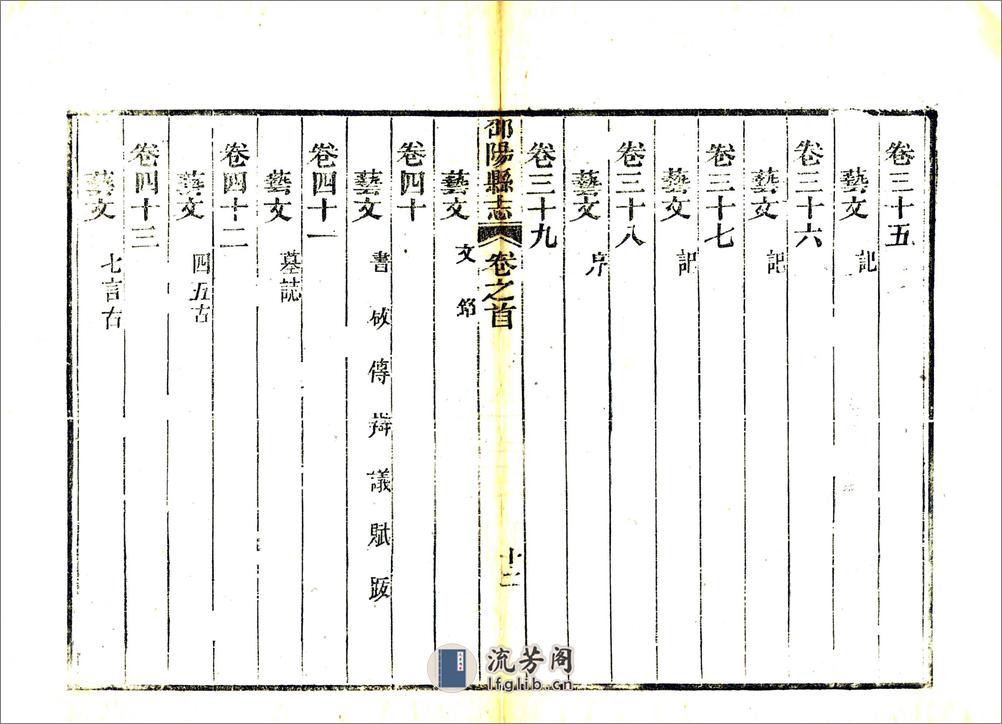 卷三十五
藝文 記
卷三十六
藝文 記
卷三十七
藝文 記
卷三十八
藝文 序
卷三十九
邵陽縣志 卷之首 十二
藝文 文
卷四十
藝文 書 啟 傳 辯 議 賦 跋
卷四十一
藝文 墓誌
卷四十二
藝文 四五古
卷四十三
藝文 七言古
流芳阁
lfglib.cn